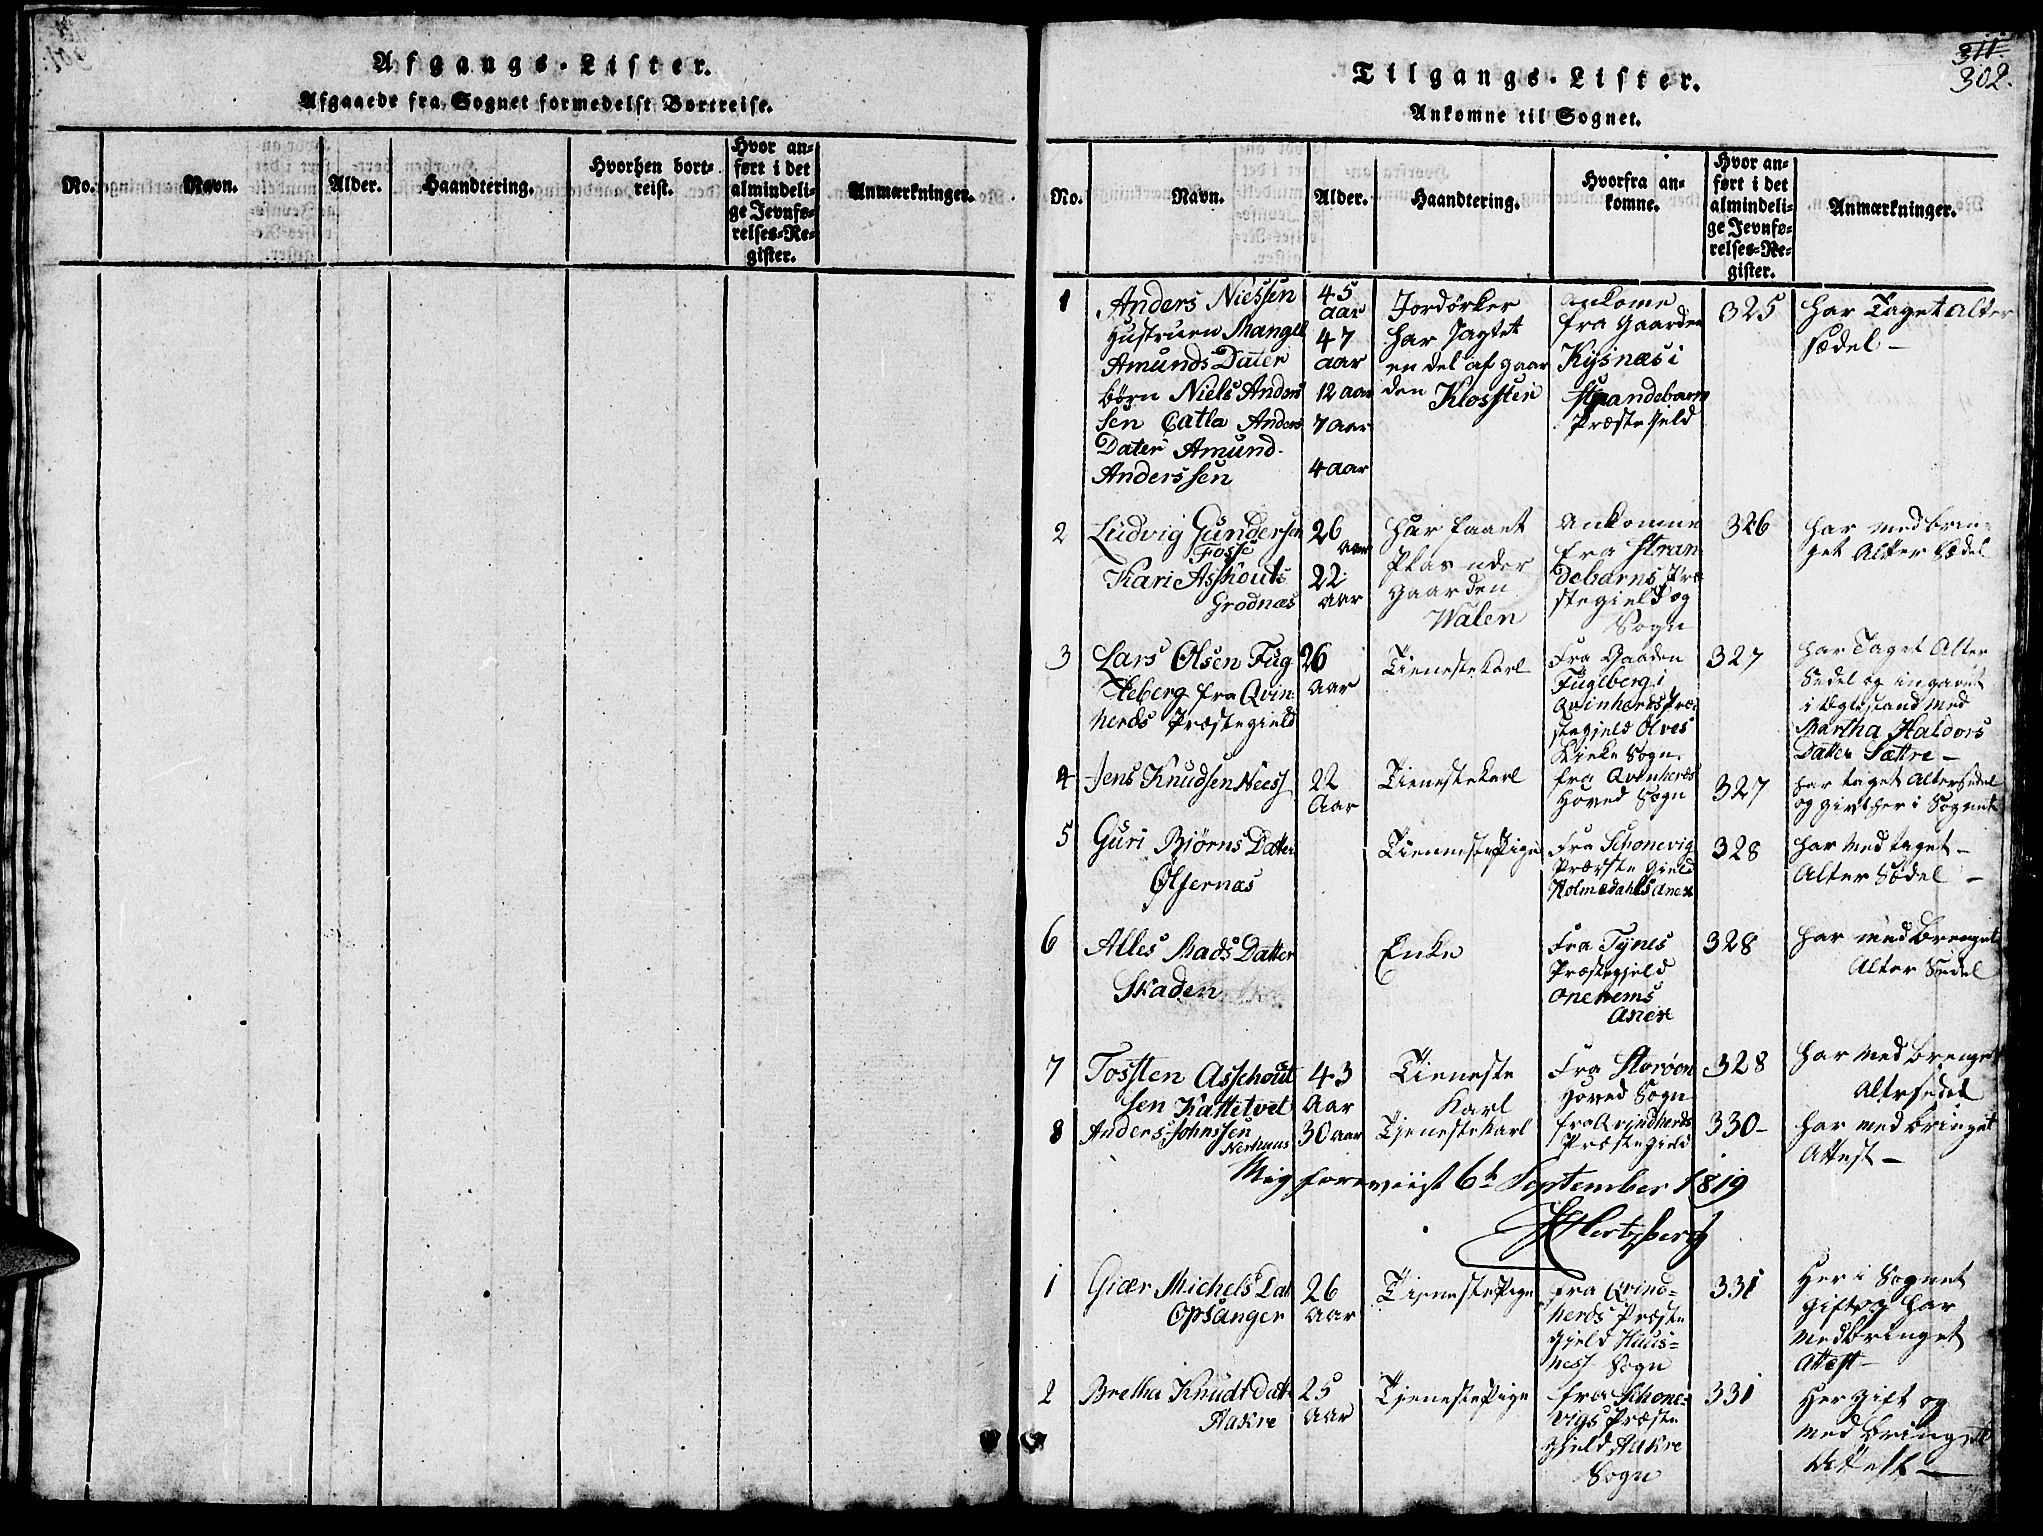 Afgangs-Lister.
Afgaaede fra Sognet formedelst Bortreise.
No.
Navn.
Alder.
Haandtering.
Hvorhen bort-
reist.
Hvor an-
ført i det
almindeli-
ge Jevnfø-
relses-Re-
gister.
Anmærkninger.
311.
302.
Tilgangs-Lister.
Ankomne til Sognet.
No.
Navn.
Alder.
Haandtering.
Hvorfra an-
komne.
Hvor an-
ført i det
almindeli-
ge Jevnfø-
relses-Re-
gister.
Anmærkninger.
1
Anders Nielssen
Hustruen Mangel
Amunds Dater
børn Niels Anders
sen Catla Anders
Dater Amund
Anderssen
45
aar
47
aar
12 aar
7 aar
4 aar
Jordørker
har
en del af gaar
den Klosster
ankomne
fra Gaarden
Kysnæs i
Strandebarm
Præstejeld
325
har Taget alter
sædel -
2
Ludvig Gundersen
Fosse
Kari Asshouts
Grodnæs
26
aar
22
aar
har faaet
Plas under
gaarden
Walen
ankomne
fra Stran
debarns Præ
stegield og
Sogn
326
har medbrin-
get Alter Sædel
3
Lars Olsen Fug
leberg fra Qvin
herds Præstegield
26
aar
Tieneste Karl
Fra Gaaden
Fuglberg i
Qvinherds Præ
stegjeld Ølves
Kirke Sogn
327
har Taget Alter
Sedel og ingaaet
i Egtestand med
Martha Haldors
Datter Sættre -
4
Jens Knudsen Neess
22
Aar
Tieneste Karl
fra Qvinherds
Hoved Sogn
327
har taget altersedel
og givt her i Sognet
5
Guri Biørns Datter
Ølfernæs
Tienneste Pige
Fra Schonevig
Præste Gield
Holmedahls Anex
328
har med taget -
Alter Sædel -
6
Alles Mads Datter
Skaden
Enke
Fra Tynes
Præstegjeld
Onehems
Anex
328
har med brenget
Alter Sedel
7
Tossten Asschout
sen Kattetvet
43
Aar
Tieneste
Karl
Fra Storøen
Hoved Sogn
328
har med brenget
altersedel
8
Anders Johnssen
Nerhuus
30 aar
Tjeneste Karl
fra Qvindherds
Præste Gield
330-
har med bringet
Attest -
Mig foreviist 6te September 1819
Hertzberg
1
Giær Michels Dat
Opsanger
26
Aar
Tieneste Pige
fra Qvind=
herds Præste
Gjeld Huus=
nes Sogn
331
Her i Sognet
gift og har
medbringet
Attest -
2
Bretha Knudtdatt
Aakre
25
Aar
Tjeneste Pige
fra Schone=
vigs Præste
Gjeld Aakre
Sogn
331
Her gift og
med bringet
Attest -